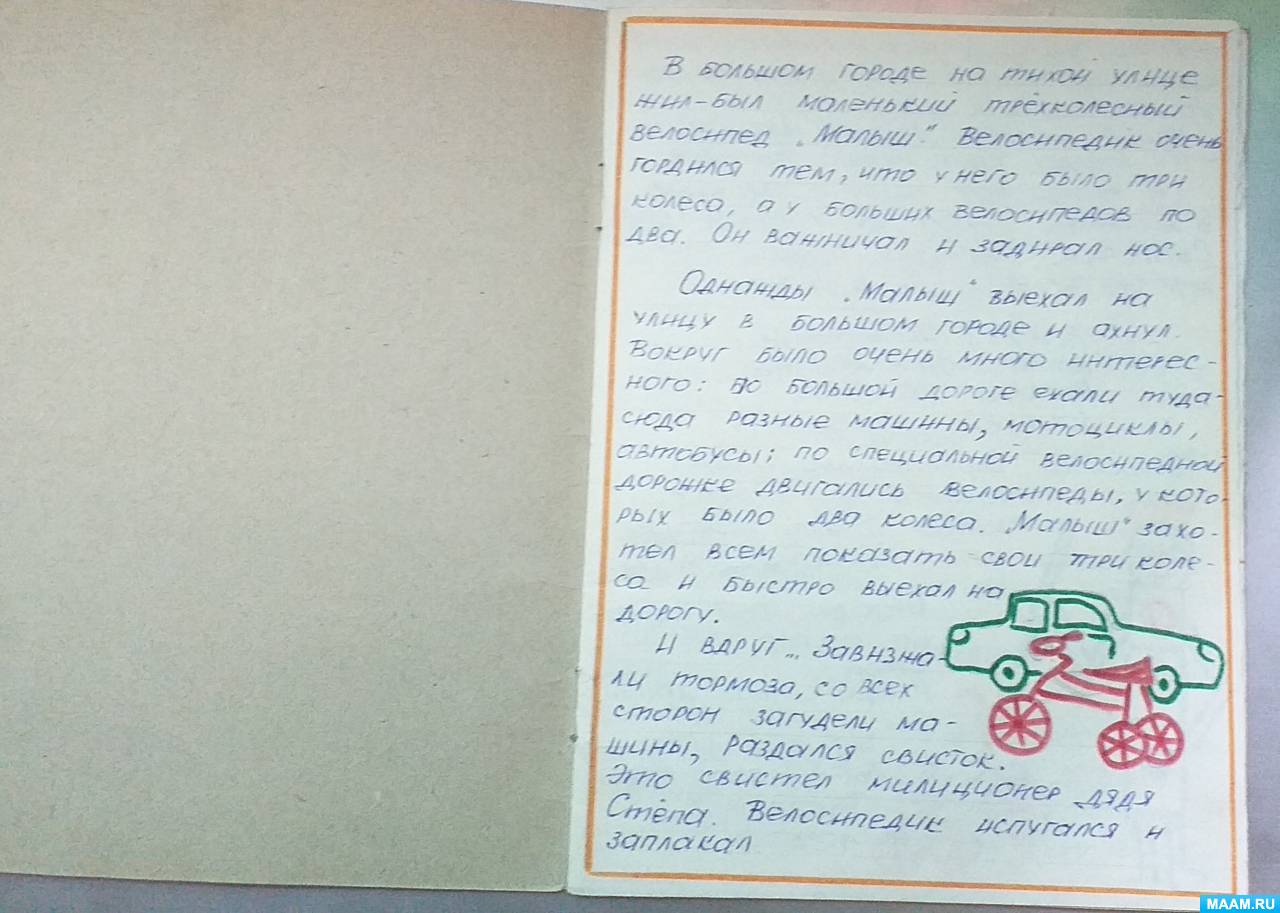 В большом городе на тихой улице
жил-был маленький трёхколесный
велосипед „Малыш". Велосипедик очень
гордился тем, что у него было три
колеса, а у больших велосипедов по
два. Он важничал и задирал нос.
Однажды „Малыш" выехал на
улицу в большом городе и ахнул.
Вокруг было очень много интерес-
ного: по большой дороге ехали туда-
сюда разные машины, мотоциклы,
автобусы; по специальной велосипедной
дорожке двигались велосипеды, у кото-
рых было два колеса. „Малыш" захо-
тел всем показать свои три коле-
са и быстро выехал на
дорогу.
И вдруг... Завизжа-
ли тормоза, со всех
сторон загудели ма-
шины, раздался свисток.
Это свистел милиционер дядя
Стёпа. Велосипедик испугался и
заплакал
MAAM.RU